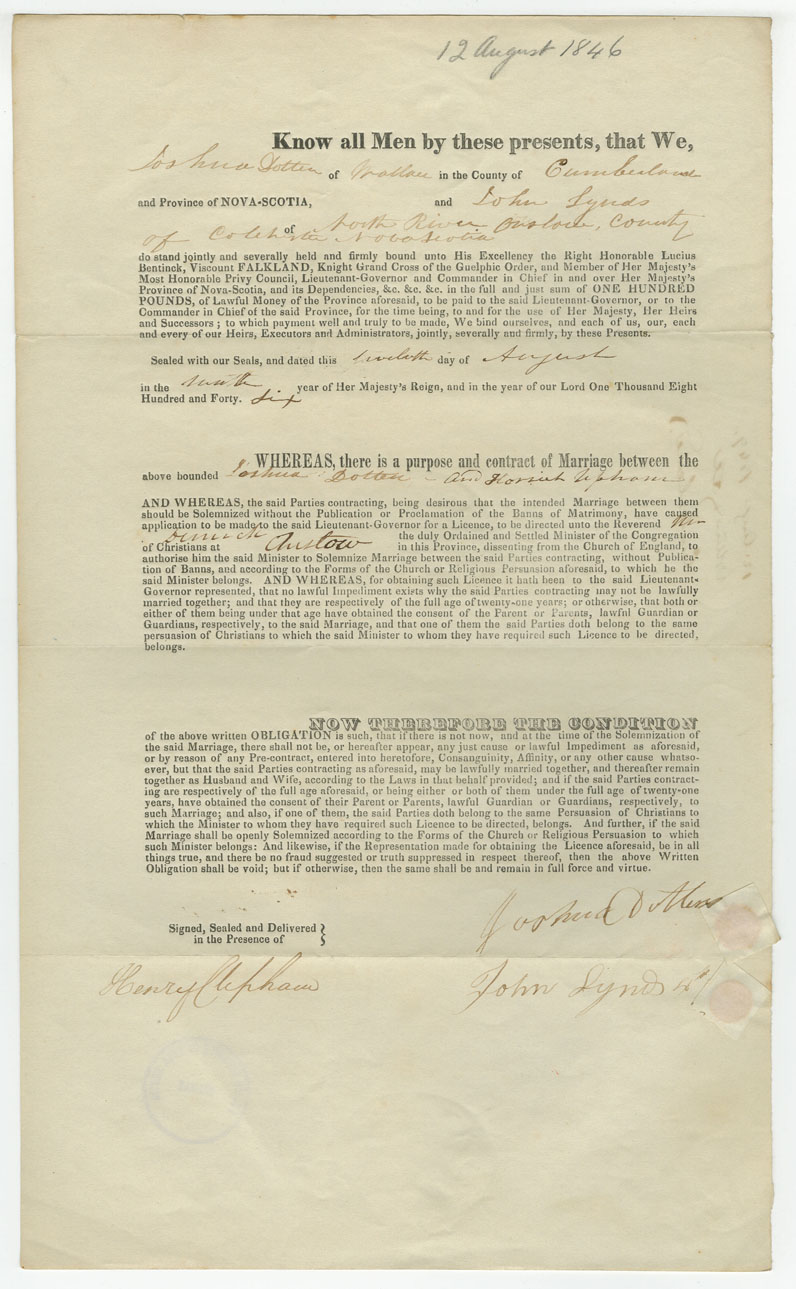 12 August 1846
Know all Men by these presents, that We,
Joshua Dotten of Wallace in the County of Cumberland
and Province of NOVA-SCOTIA, and John Lynds
of North River Onslow, County
of Colchester Nova Scotia
do stand jointly and severally held and firmly bound unto His Excellency the Right Honorable Lucius
Bentinck, Viscount FALKLAND, Knight Grand Cross of the Guelphic Order, and Member of Her Majesty's
Most Honorable Privy Council, Lieutenant-Governor and Commander in Chief in and over Her Majesty's
Province of Nova-Scotia, and its Dependencies, &c. &c. &c. in the full and just sum of ONE HUNDRED
POUNDS, of Lawful Money of the Province aforesaid, to be paid to the said Lieutenant-Governor, or to the
Commander in Chief of the said Province, for the time being, to and for the use of Her Majesty, Her Heirs
and Successors; to which payment well and truly to be made, We bind ourselves, and each of us, our, each
and every of our Heirs, Executors and Administrators, jointly, severally and firmly, by these Presents.
Sealed with our Seals, and dated this twelfth day of August
in the ninth year of Her Majesty's Reign, and in the year of our Lord One Thousand Eight
Hundred and Forty. Six
WHEREAS, there is a purpose and contract of Marriage between the
above bounded Joshua Dotten and Harriet Upham
AND WHEREAS, the said Parties contracting, being desirous that the intended Marriage between them
should be Solemnized without the Publication or Proclamation of the Banns of Matrimony, have caused
application to be made to the said Lieutenant-Governor for a Licence, to be directed unto the Reverend Mr
the duly Ordained and Settled Minister of the Congregation
of Christians at Onslow in this Province, dissenting from the Church of England, to
authorise him the said Minister to Solemnize Marriage between the said Parties contracting, without Publica-
tion of Banns, and according to the Forms of the Church or Religious Persuasion aforesaid, to which he the
said Minister belongs. AND WHEREAS, for obtaining such Licence it hath been to the said Lieutenant-
Governor represented, that no lawful Impediment exists why the said Parties contracting may not be lawfully
married together; and that they are respectively of the full age of twenty-one years; or otherwise, that both or
either of them being under that age have obtained the consent of the Parent or Parents, lawful Guardian or
Guardians, respectively, to the said Marriage, and that one of them the said Parties doth belong to the same
persuasion of Christians to which the said Minister to whom they have required such Licence to be directed,
belongs.
NOW THEREFORE THE CONDITION
of the above written OBLIGATION is such, that if there is not now, and at the time of the Solemnization of
the said Marriage, there shall not be, or hereafter appear, any just cause or lawful Impediment as aforesaid,
or by reason of any Pre-contract, entered into heretofore, Consanguinity, Affinity, or any other cause whatso-
ever, but that the said Parties contracting as aforesaid, may be lawfully married together, and thereafter remain
together as Husband and Wife, according to the Laws in that behalf provided; and if the said Parties contract-
ing are respectively of the full age aforesaid, or being either or both of them under the full age of twenty-one
years, have obtained the consent of their Parent or Parents, lawful Guardian or Guardians, respectively, to
such Marriage; and also, if one of them, the said Parties doth belong to the same Persuasion of Christians to
which the Minister to whom they have required such Licence to be directed, belongs. And further, if the said
Marriage shall be openly Solemnized according to the Forms of the Church or Religious Persuasion to which
such Minister belongs: And likewise, if the Representation made for obtaining the Licence aforesaid, be in all
things true, and there be no fraud suggested or truth suppressed in respect thereof, then the above Written
Obligation shall be void; but if otherwise, then the same shall be and remain in full force and virtue.
Joshua Dotten
Signed, Sealed and Delivered
in the Presence of
Henry Upham
John Lynds